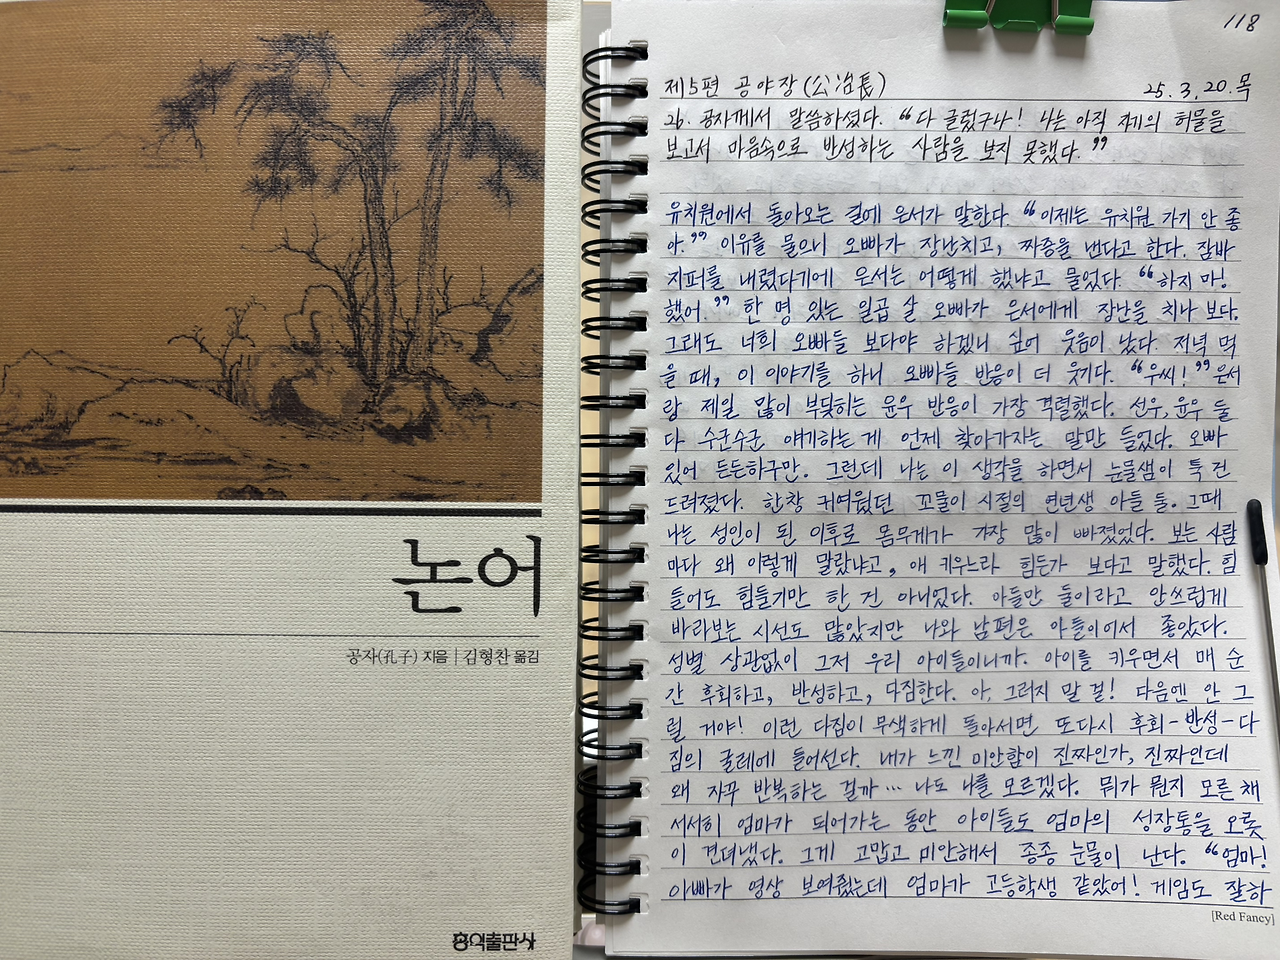 논어
공자(孔子) 지음 | 김형찬 옮김
홍익출판사
118
제5편 공야장(公冶長) 25. 3. 20. 목
26. 공자께서 말씀하셨다. “다 글렀구나! 나는 아직 자기의 허물을
보고서 마음속으로 반성하는 사람을 보지 못했다.”
유치원에서 돌아오는 길에 은서가 말한다. “이제는 유치원 가기 안 좋
아.” 이유를 물으니 오빠가 장난치고, 짜증을 낸다고 한다. 잠바
지퍼를 내렸다기에 은서는 어떻게 했냐고 물었다. “하지 마!
했어.” 한 명 있는 일곱 살 오빠가 은서에게 장난을 치나 보다.
그래도 너희 오빠들 보다야 하겠니 싶어 웃음이 났다. 저녁 먹
을 때, 이 이야기를 하니 오빠들 반응이 더 웃기다. “우씨!” 은서
랑 제일 많이 부딪히는 윤우 반응이 가장 격렬했다. 선우, 윤우 둘
다 수군수군 얘기하는 게 언제 찾아가자는 말만 들었다. 오빠
있어 든든하구만. 그런데 나는 이 생각을 하면서 눈물샘이 툭 건
드려졌다. 한창 귀여웠던 꼬물이 시절의 연년생 아들 둘. 그때
나는 성인이 된 이후로 몸무게가 가장 많이 빠졌었다. 보는 사람
마다 왜 이렇게 말랐냐고, 애 키우느라 힘든가 보다고 말했다. 힘
들어도 힘들기만 한 건 아니었다. 아들만 둘이라고 안쓰럽게
바라보는 시선도 많았지만 나와 남편은 아들이어서 좋았다.
성별 상관없이 그저 우리 아이들이니까. 아이를 키우면서 매 순
간 후회하고, 반성하고, 다짐한다. 아, 그러지 말 걸! 다음엔 안 그
럴 거야! 이런 다짐이 무색하게 돌아서면 또다시 후회-반성-다
짐의 굴레에 들어선다. 내가 느낀 미안함이 진짜인가, 진짜인데
왜 자꾸 반복하는 걸까… 나도 나를 모르겠다. 뭐가 뭔지 모른 채
서서히 엄마가 되어가는 동안 아이들도 엄마의 성장통을 오롯
이 견뎌냈다. 그게 고맙고 미안해서 종종 눈물이 난다. “엄마!
아빠가 영상 보여줬는데 엄마가 고등학생 같았어! 게임도 잘하
[Red Fancy]